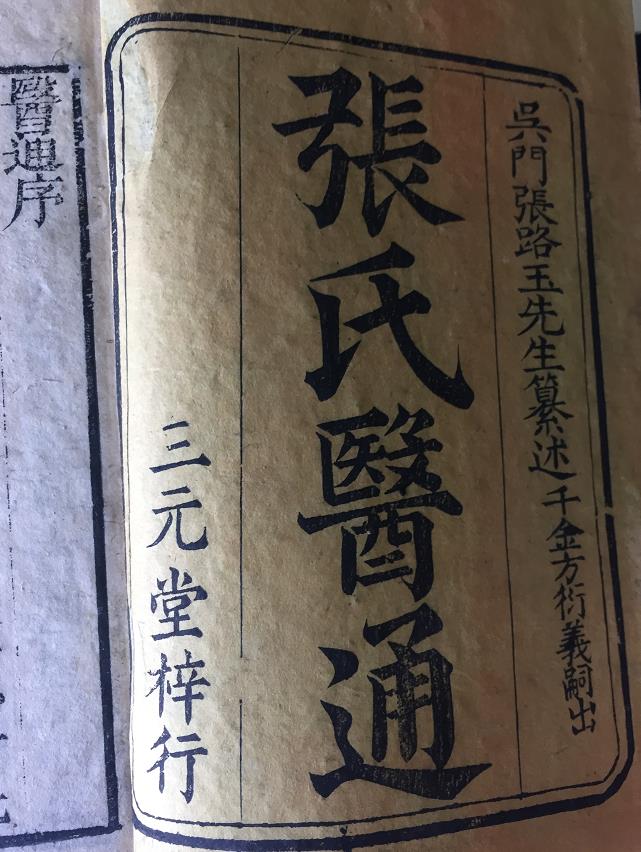 吳門張路玉先生纂述千金方衍義嗣出
張氏醫通
三元堂梓行
醫通序